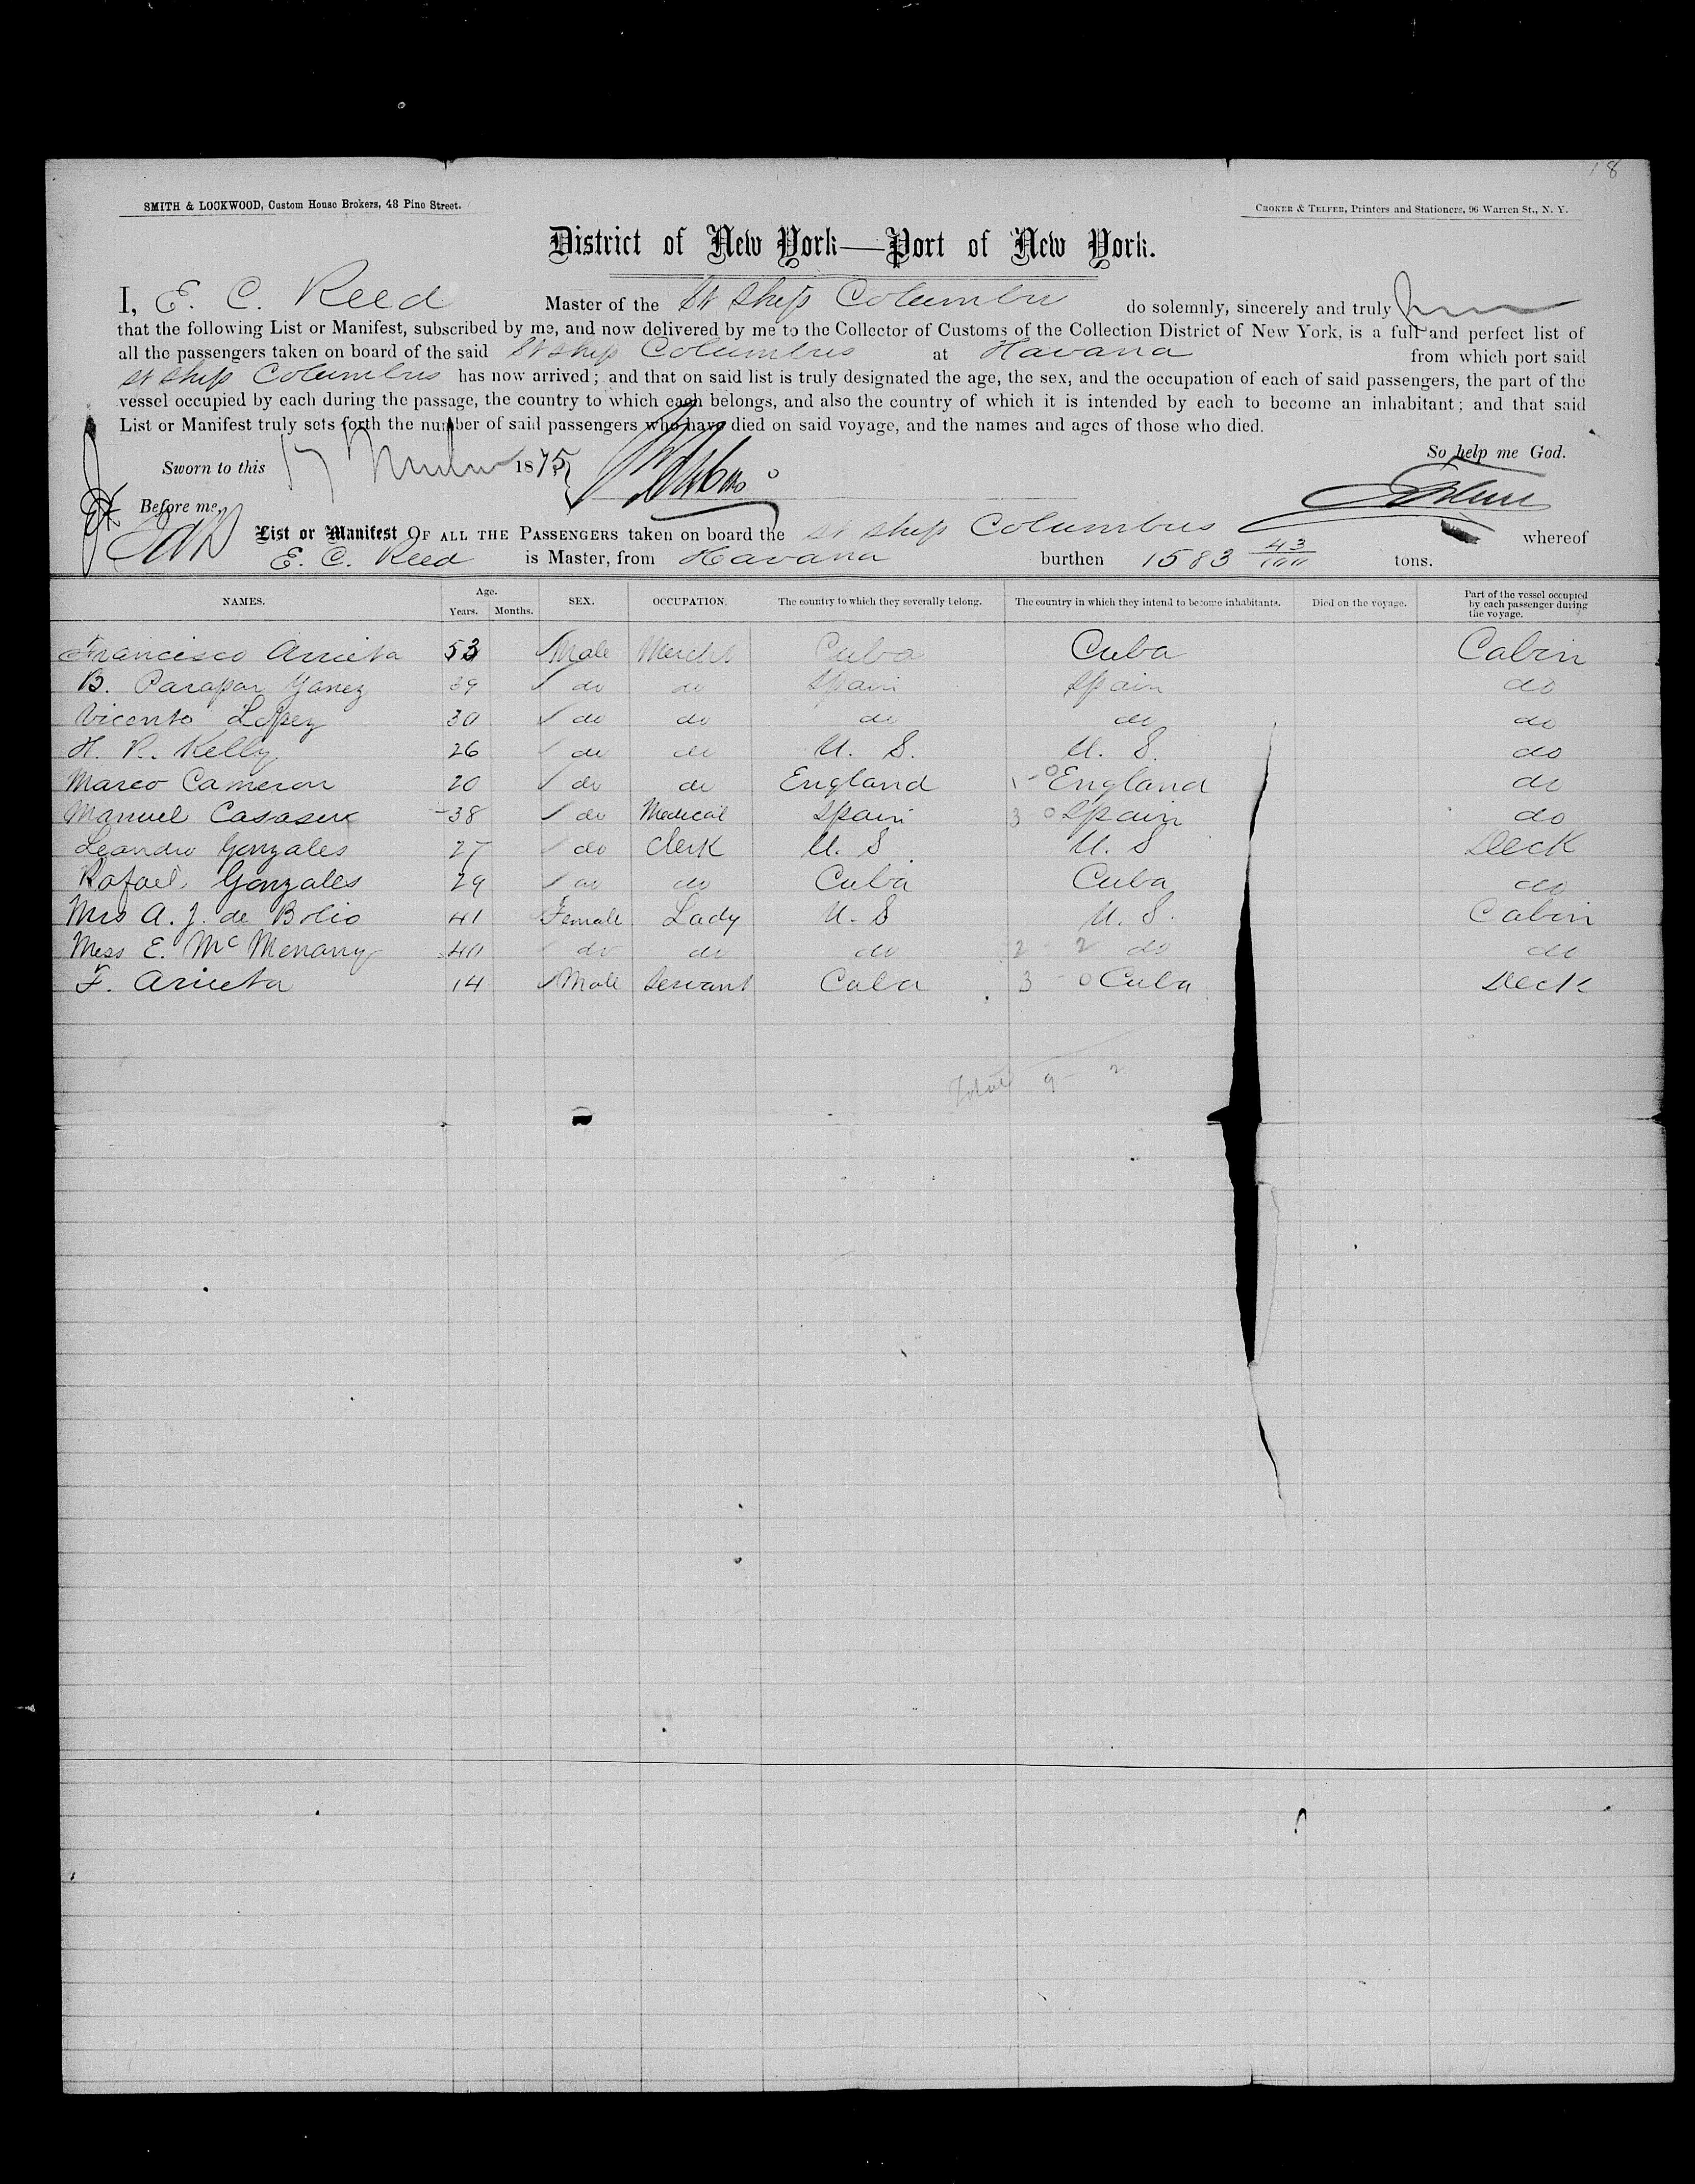 18
SMITH & LOCKWOOD, Custom House Brokers, 48 Pine Street.
CROKER & TELFER, Printers and Stationers, 96 Warren St., N. Y.
District of New York—Port of New York.
I, E. C. Reed Master of the St Ship Columbus do solemnly, sincerely and truly
that the following List or Manifest, subscribed by me, and now delivered by me to the Collector of Customs of the Collection District of New York, is a full and perfect list of
all the passengers taken on board of the said St Ship Columbus at Havana from which port said
St Ship Columbus has now arrived; and that on said list is truly designated the age, the sex, and the occupation of each of said passengers, the part of the
vessel occupied by each during the passage, the country to which each belongs, and also the country of which it is intended by each to become an inhabitant; and that said
List or Manifest truly sets forth the number of said passengers who have died on said voyage, and the names and ages of those who died.
So help me God.
Sworn to this 17 1875
Before me,
List or Manifest OF ALL THE PASSENGERS taken on board the St Ship Columbus whereof
E. C. Reed is Master, from Havana burthen 1583 43/100 tons.
NAMES. Age. Years. Months. SEX. OCCUPATION. The country to which they severally belong. The country in which they intend to become inhabitants. Died on the voyage. Part of the vessel occupied by each passenger during the voyage.
Francisco Arrieta 53 Male Mercht Cuba Cuba Cabin
B. Parapar Yanez 39 do do Spain Spain do
Vicento Lopez 30 do do do do do
H. R. Kelly 26 do do U. S. U. S. do
Marco Cameron 20 do do England 1 - 0 England do
Manuel 38 do Medical Spain 3 0 Spain do
Leandro Gonzales 27 do Clerk U. S. U. S Deck
Rafael Gonzales 29 do do Cuba Cuba do
Mrs A. J. de Bolio 41 Female Lady U. S U. S. Cabin
Miss E. Mc Menamy 40 do do do 2 - 2 do do
F. Arrieta 14 Male Servant Cuba 3 - 0 Cuba Deck
Total 9 - 2